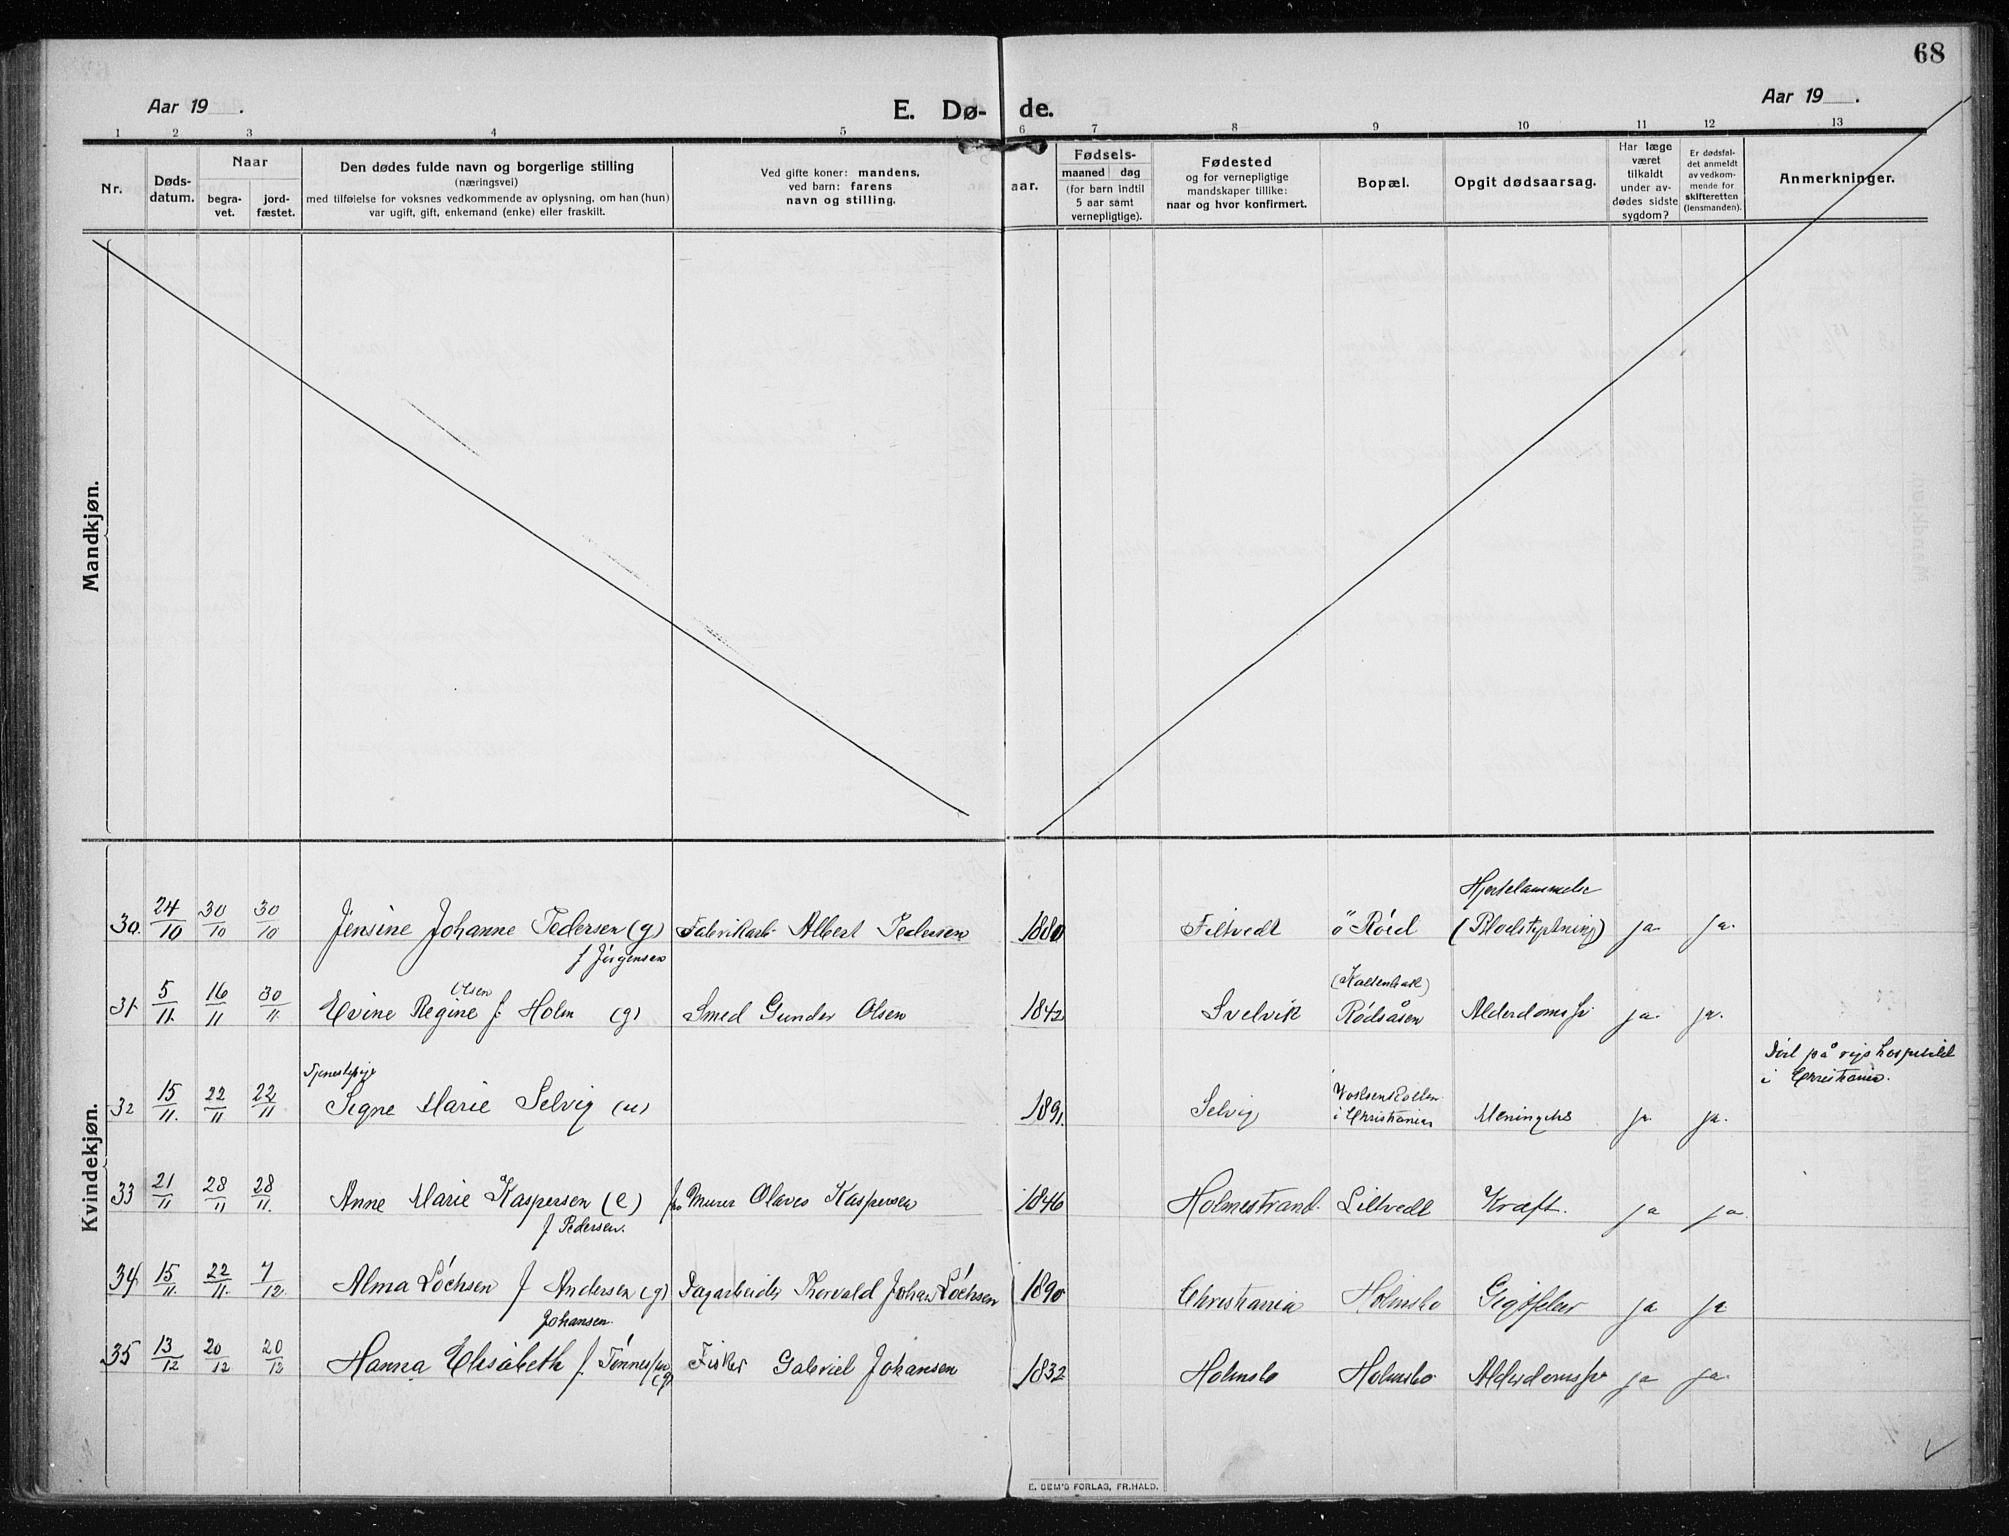 68
Aar 19 .
E. Dø- de.
Aar 19 .
1 2 3 4 5 6 7 8 9 10 11 12 13
Nr.
Døds-
datum.
Naar
begra-
vet.
jord-
fæstet.
Den dødes fulde navn og borgerlige stilling
(næringsvei)
med tilføielse for voksnes vedkommende av oplysning, om han (hun)
var ugift, gift, enkemand (enke) eller fraskilt.
Ved gifte koner: mandens,
ved barn: farens
navn og stilling.
aar.
Fødsels-
maaned dag
(for barn indtil
5 aar samt
vernepligtige).
Fødested
og for vernepligtige
mandskaper tillike:
naar og hvor konfirmert.
Bopæl.
Opgit dødsaarsag.
Har læge
været
tilkaldt
under av-
dødes sidste
sygdom?
Er dødsfal-
det anmeldt
av vedkom-
mende for
skifteretten
(lensmanden).
Anmerkninger.
Mandkjøn.
Kvindekjøn.
Hjertelammelse
30. 24/10 30/10 30/10 Jensine Johanne Pedersen (g) Fabrikarb. Albert Pedersen 1880 Filtvedt ö Röed (Blodstyrtning) ja ja
f Jörgensen
Olsen (Kaltenbæk)
31. 5/11. 16/11 30/11. Evine Regine f. Holm (g) Smed Gunder Olsen 1842 Svelvik Rödsåsen Alderdomssv. ja. ja.
Tjenestepige Död på rigshospitalet
i Christiania.
32 15/11. 22/11 22/11 Signe Marie Selvig (u) 1891. Selvig i Christiania Meningitis ja. ja.
33 21/11 28/11 28/11. Anne Marie Kaspersen (e) Murer Olaves Kaspersen 1846 Holmestrand. Liltvedt Kræft. ja ja.
f Pedersen.
34 15/11. 22/11. 7/12. Alma Löchsen f Andersen (g) Dagarbeider Thorvald Johan Löchsen 1890 Christiania Holmsbo Gigtfeber ja ja
Johansen.
35 13/12 20/12 20/12 Hanna Elisabeth f. Tönnessen (g) Fisker Gabriel Johansen 1832 Holmsbo Holmsbo Alderdomssv ja ja.
E. SEM'S FORLAG, FR.HALD.